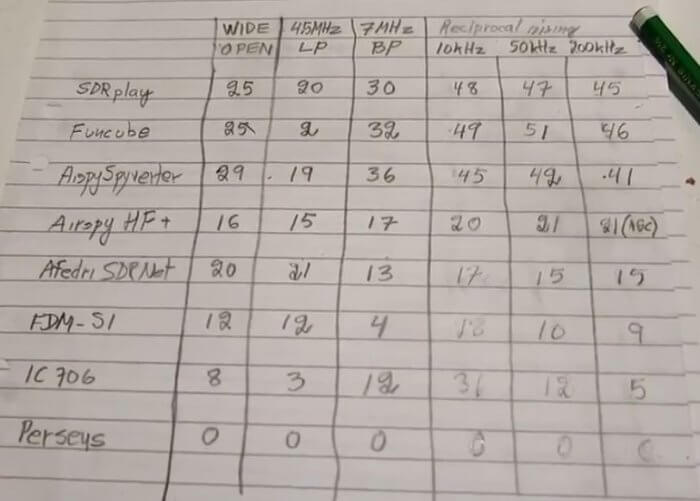 WIDE 45MHz 7MHz Reciprocal mixing
OPEN LP BP 10kHz 50kHz 200kHz
SDRplay 25 20 30 48 47 45
Funcube 25 2 32 49 51 46
AispySpyverter 29 19 36 45 42 41
Airspy HF+ 16 15 17 20 21 21(AGC)
Afedri SDRNet 20 21 13 17 15 15
FDM-S1 12 12 4 18 10 9
IC706 8 3 12 31 12 5
Perseys 0 0 0 0 0 0